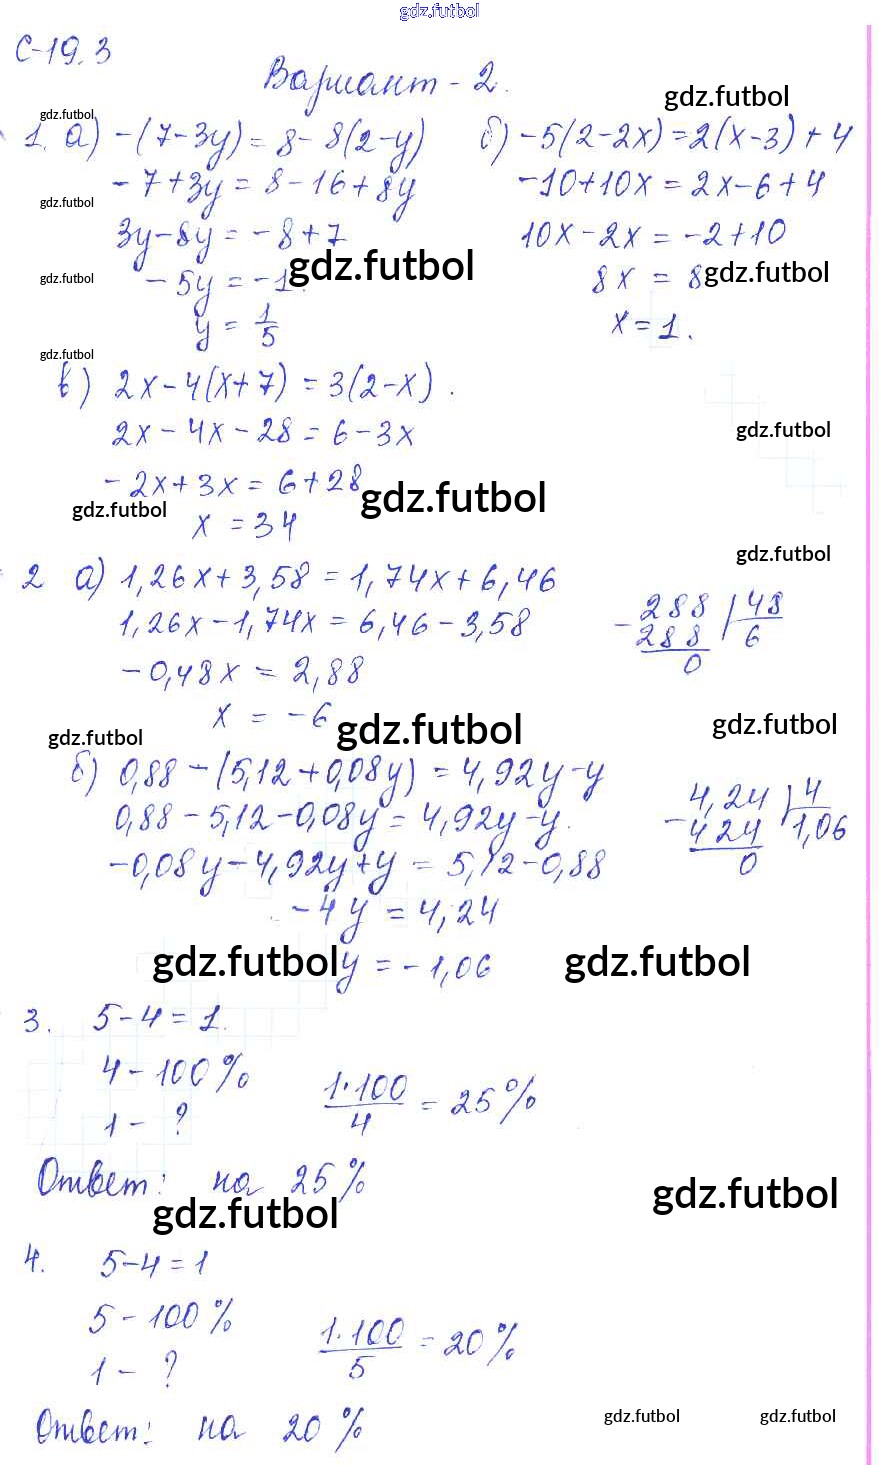 gdz.futbol
С-19.3
Вариант-2.
gdz.futbol
gdz.futbol
1. а) -(7-3y) = 8-8(2-y)
-7+3y = 8-16+8y
gdz.futbol
3y-8y = -8+7
gdz.futbol
gdz.futbol
-5y = -1.
y = 1/5
б) -5(2-2x)=2(x-3)+4
-10+10x = 2x-6+4
10x-2x = -2+10
8x = 8
gdz.futbol
x=1.
gdz.futbol
в) 2x-4(x+7) = 3(2-x).
2x-4x-28 = 6-3x
gdz.futbol
-2x+3x = 6+28
gdz.futbol
gdz.futbol
x = 34
gdz.futbol
2 а) 1,26x+3,58=1,74x+6,46
1,26x-1,74x = 6,46-3,58
-0,48x = 2,88
x = -6
-288 | 48
288 6
0
gdz.futbol
gdz.futbol
gdz.futbol
б) 0,88-(5,12+0,08y) = 4,92y-y
0,88-5,12-0,08y = 4,92y-y.
-0,08y-4,92y+y = 5,12-0,88
-4y = 4,24
y = -1,06
-4,24 | 4
424 1,06
0
gdz.futbol
gdz.futbol
3. 5-4=1.
4-100%
1- ?
1·100/4 = 25%
Ответ: на 25%
gdz.futbol
gdz.futbol
4. 5-4=1
5-100%
1- ?
1·100/5 = 20%
Ответ: на 20%
gdz.futbol
gdz.futbol